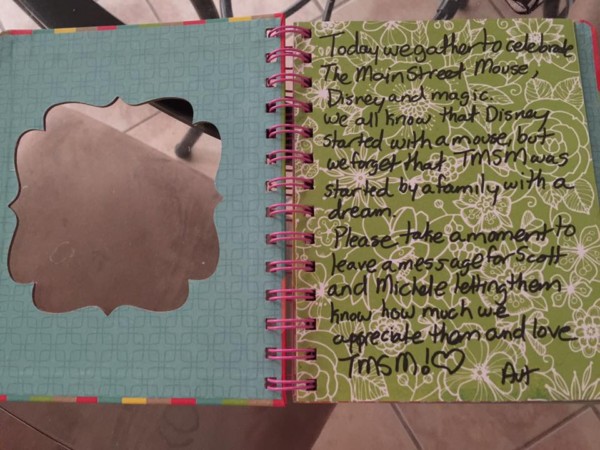 Today we gather to celebrate
The Main Street Mouse,
Disney and magic.
We all know that Disney
started with a mouse, but
we forget that TMSM was
started by a family with a
dream.
Please take a moment to
leave a message for Scott
and Michele letting them
know how much we
appreciate them and love
TMSM!♡